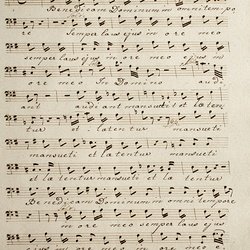 Benedicam Dominum in omni tempo
re Semper laus ejus in ore meo
semper laus ejus in ore meo ejus in
ore meo In Domino audi
ant audiant mansueti et laten
tur et latentur mansueti
mansueti et latentur mansueti
et latentur mansueti et latentur
Benedicam Dominum in omni tempore
in ore meo semper laus
ejus in ore meo in ore meo